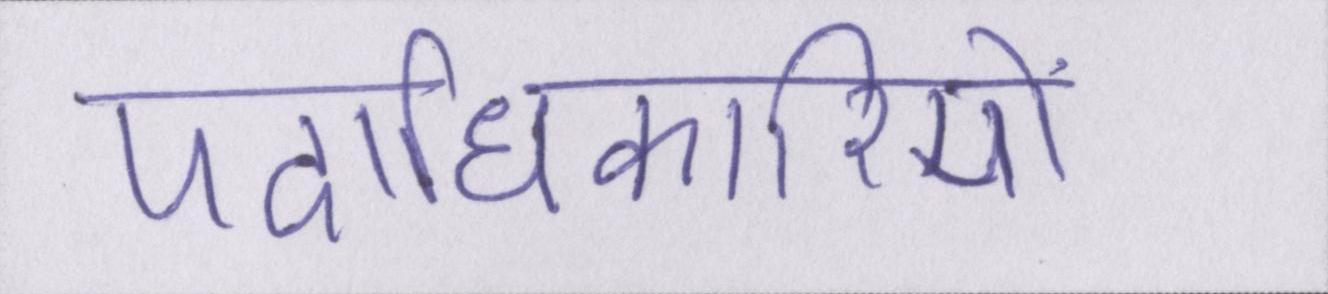 पदाधिकारियों